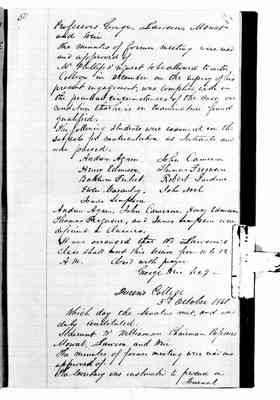 Professors George, Lawson, Mowat
and Weir
The minutes of former meeting were read
and approved of
Mr Phillips's request to be allowed to enter
College in December on the expiry of his
present engagement, was complied with in
the peculiar circumstances of the case, on
condition that he is on examination found
qualified.
The following students were examined on the
subjects for matriculation as Students and
were passed.
Andrew Agnew, John Cameron
Henry Edmison Thomas Ferguson
Robert Jardine
Evan Macaulay, John
James Simpson
Andrew Agnew, John Cameron, Henry Edmison
Thomas Ferguson, and James Simpson were
deficient in
It was arranged that Mr Lawson's
class shall meet this Session from 11 to 12
A.M. Closed with prayer
George Weir Secy.
Queen's College
3rd October 1861
Which day the Senatus met, and was
duly constituted.
Sederunt Dr Williamson Chairman Professors
Mowat, Lawson and Weir
The minutes of former meeting were read and
approved of
The Secretary was instructed to procure a
Journal